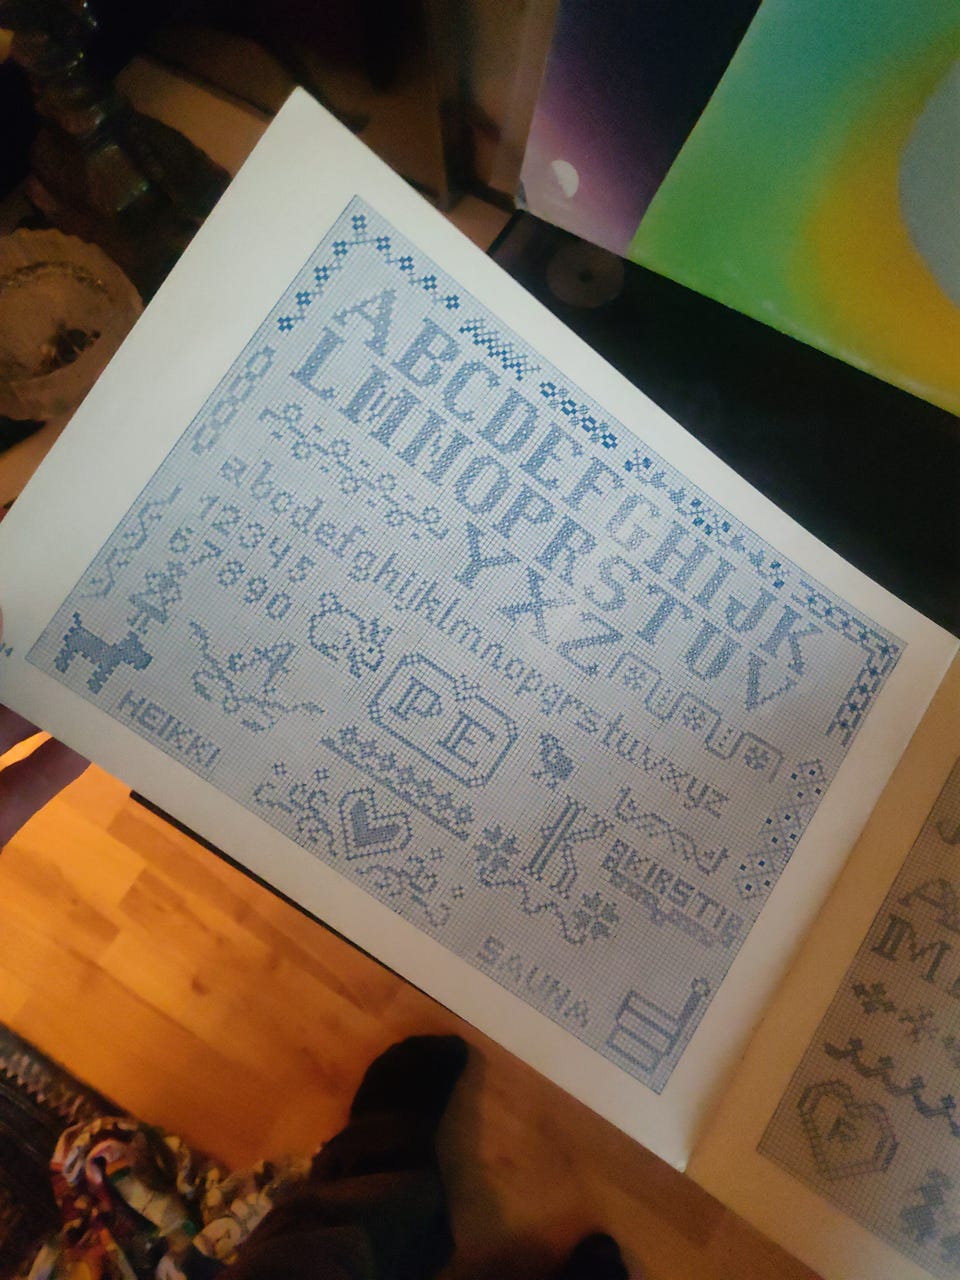 ABCDEFGHIJK
LMNOPRSTUV
YXZ
abcdefghijklmnopqrstuvxyz
12345
67890
A
PE
K
KIRSTI
HEIKKI
SAUNA
M